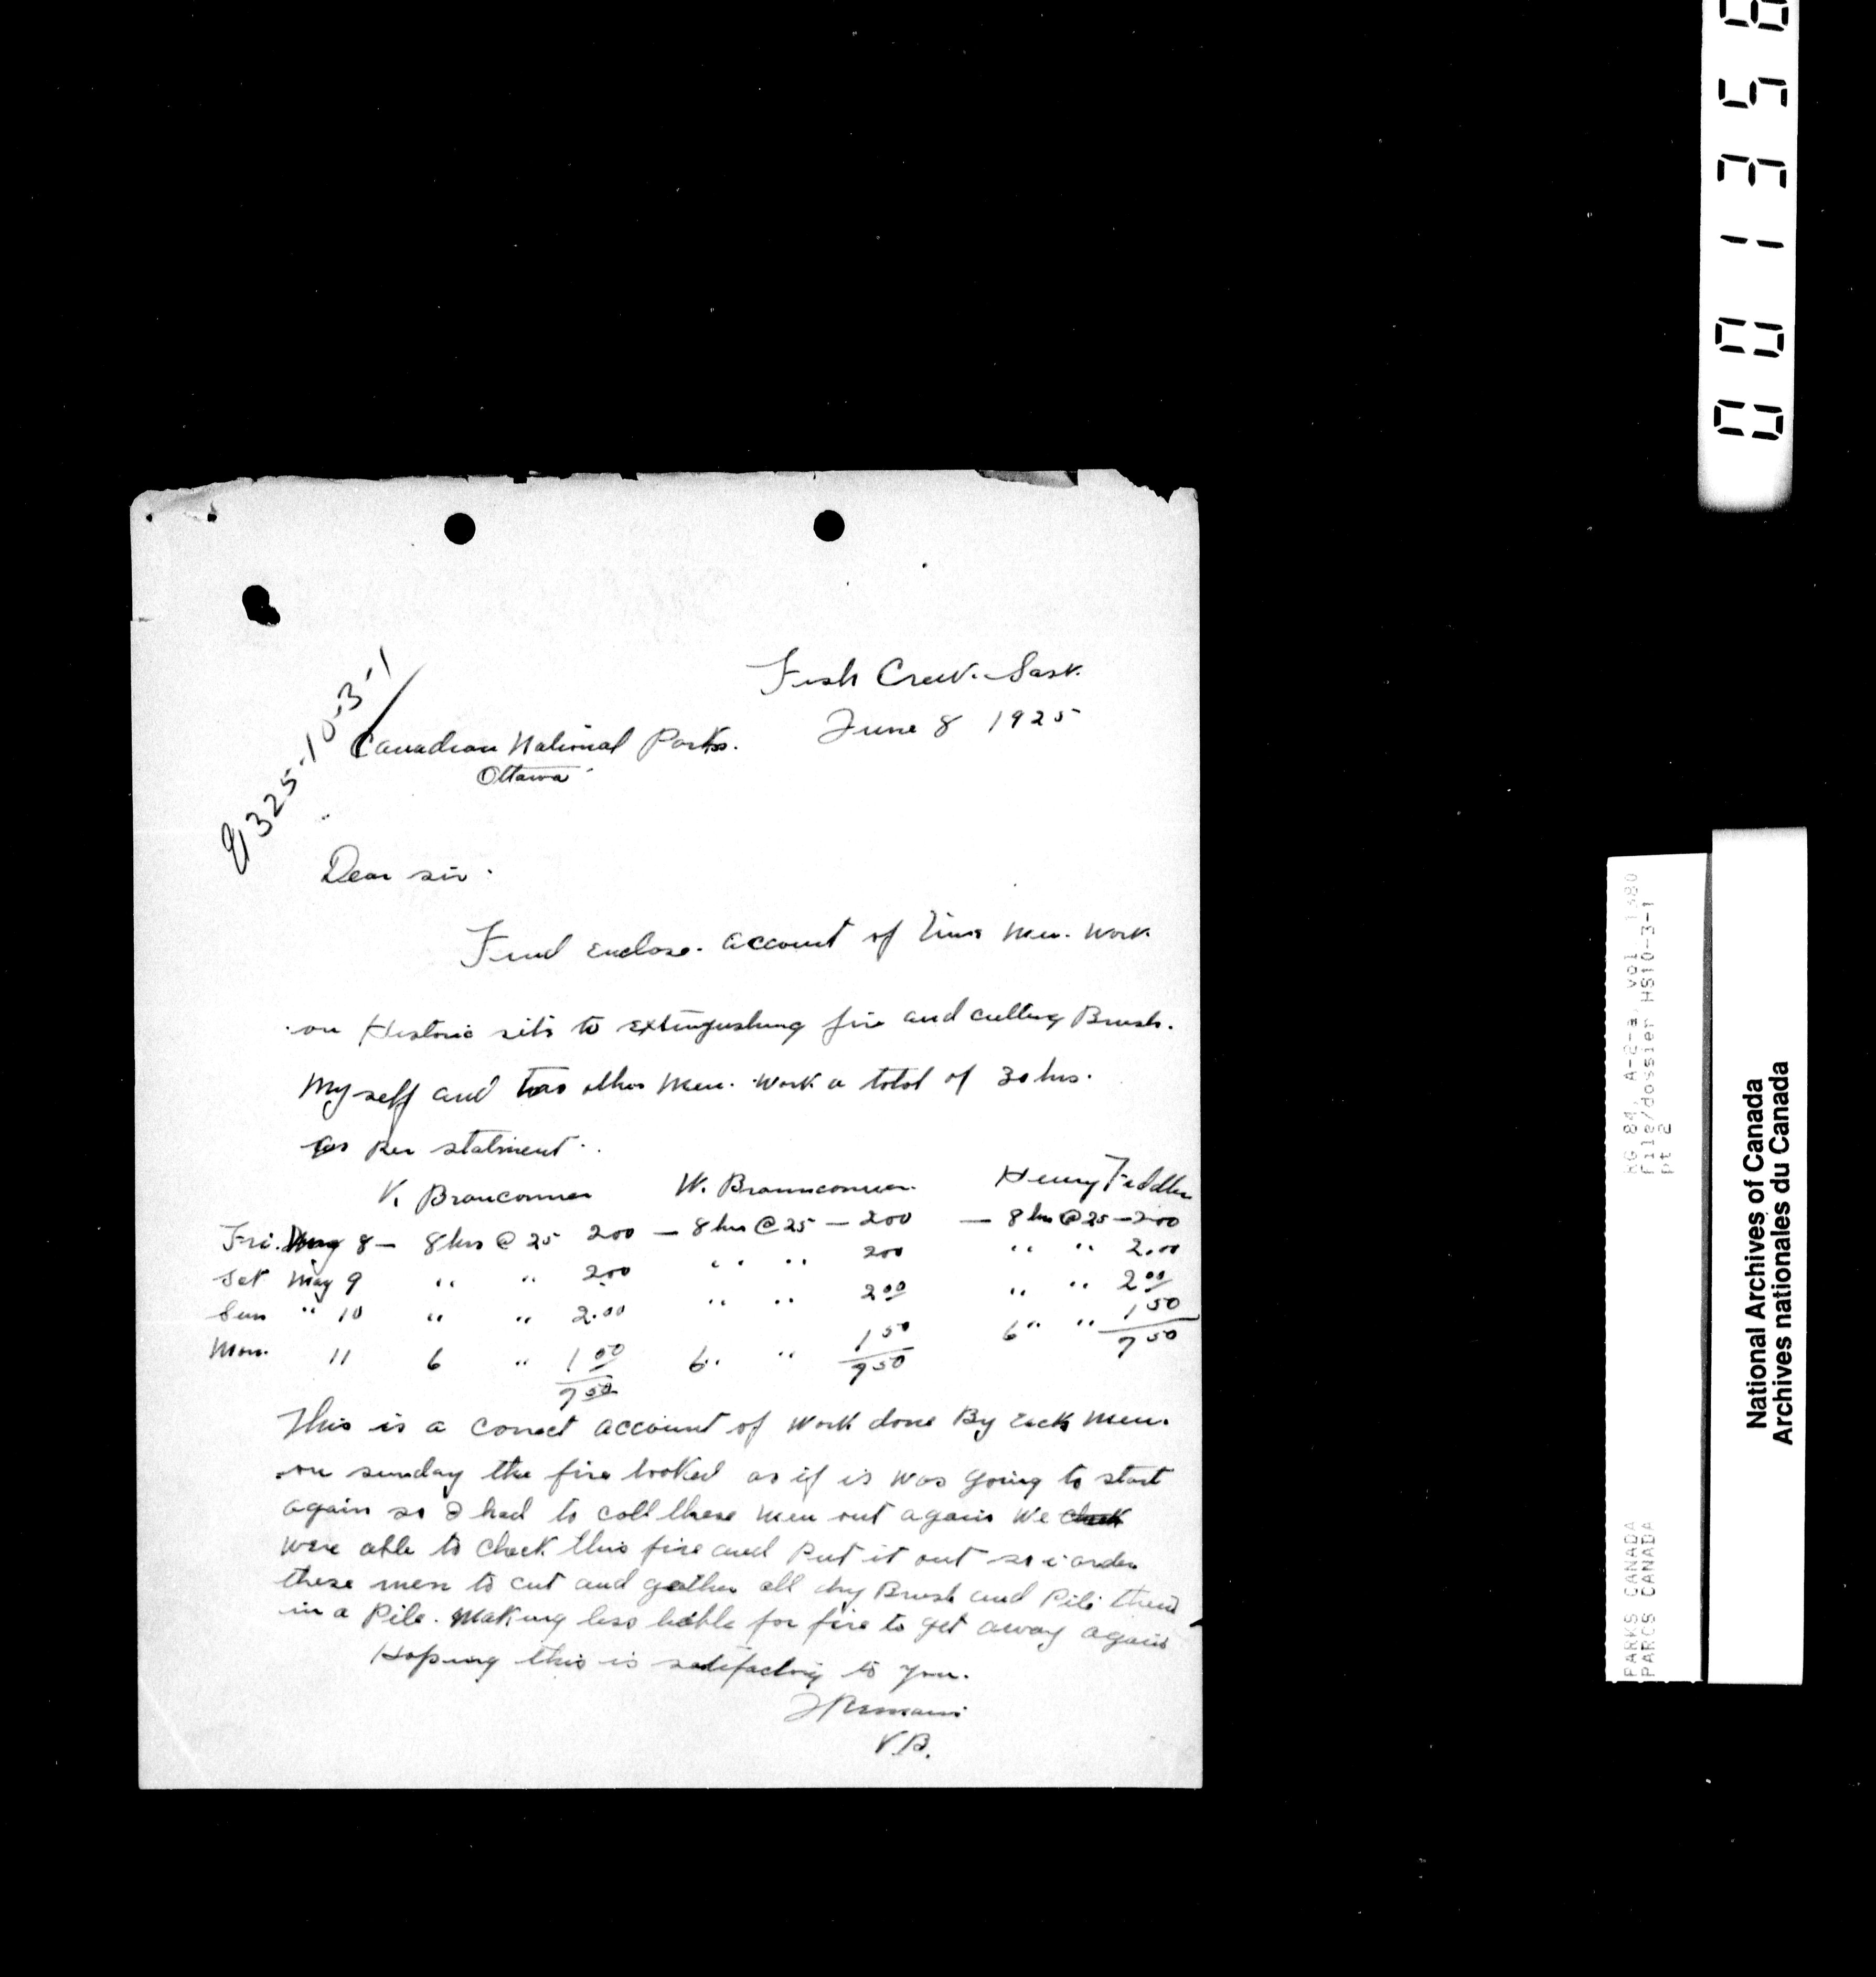 Fish Creek. Sask.
June 8 1925
G325-10-3-1
Canadian National Parks.
Ottawa
Dear sir.
Find enclose. account of time men. work
on Historic site to extingushing fire and cutting Brush.
My self and two other men. work a total of 30 hrs.
as Per statment.
V. Branconnier W. Brannconnier. Henry Fiddler
Fri. May 8 — 8 hrs @ 25 200 — 8 hrs @ 25 — 200 — 8 hrs @ 25 — 200
Sat May 9 " " 200 " " 200 " " 2.00
Sun " 10 " " 2.00 " " 200 " " 200
Mon. 11 6 " 1 50 6 " " 1 50 6 " " 1 50
7 50 7 50 7 50
This is a correct account of work done By each men.
on sunday the fire looked as if is was going to start
again so I had to call these men out again We check
were able to check this fire and Put it out so i order
these men to cut and gather all dry Brush and Pile them
in a Pile. Making less liable for fire to get away again
Hoping this is satifactory to you.
I Remain
V.B.
001358
RG 84, A-2-a, vol 1380
file/dossier HS10-3-1
pt 2
PARKS CANADA
PARCS CANADA
National Archives of Canada
Archives nationales du Canada